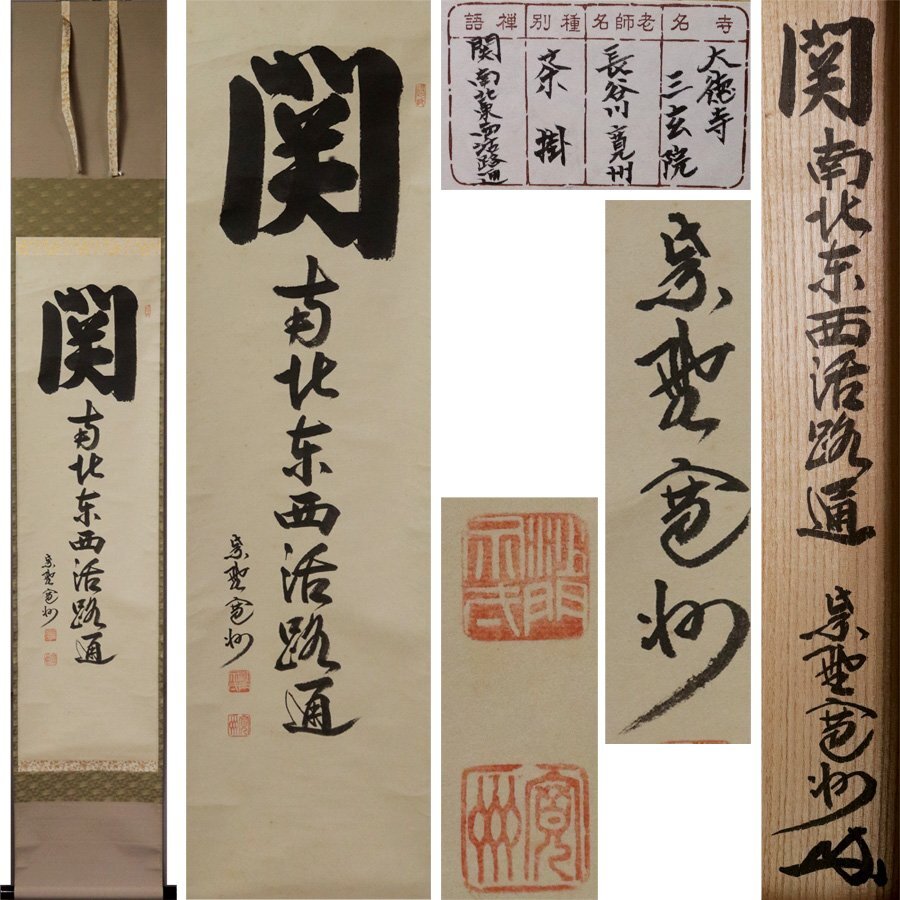 関
南北东西活路通
紫野寛州
関
南北东西活路通
紫野寛州
沙門
寛州
寺名
大徳寺
三玄院
老師名
長谷川寛州
種別
茶掛
禅語
関南北東西活路通
紫野寛州
関南北东西活路通
紫野寛州